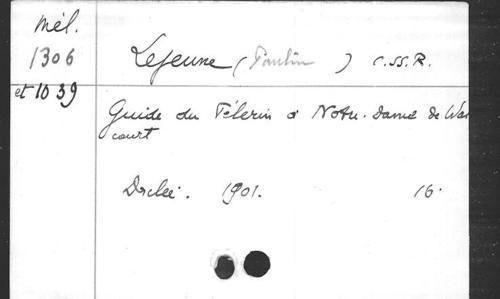 Mél.
1306 Lejeune (Paulin) C.SS.R.
et 1039
Guide du Pèlerin à Notre-Dame de Wal
court
1901. 16.